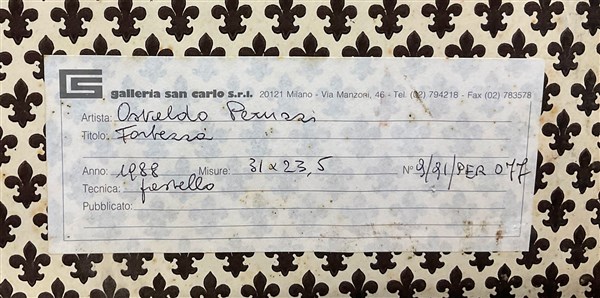 galleria san carlo s.r.l. 20121 Milano - Via Manzoni, 46 - Tel. (02) 794218 - Fax (02) 783578
Artista: Osvaldo Peruzzi
Titolo: Fortezza
Anno: 1988 Misure: 31 x 23,5 N° 9/91/PER 077
Tecnica: pastello
Pubblicato: